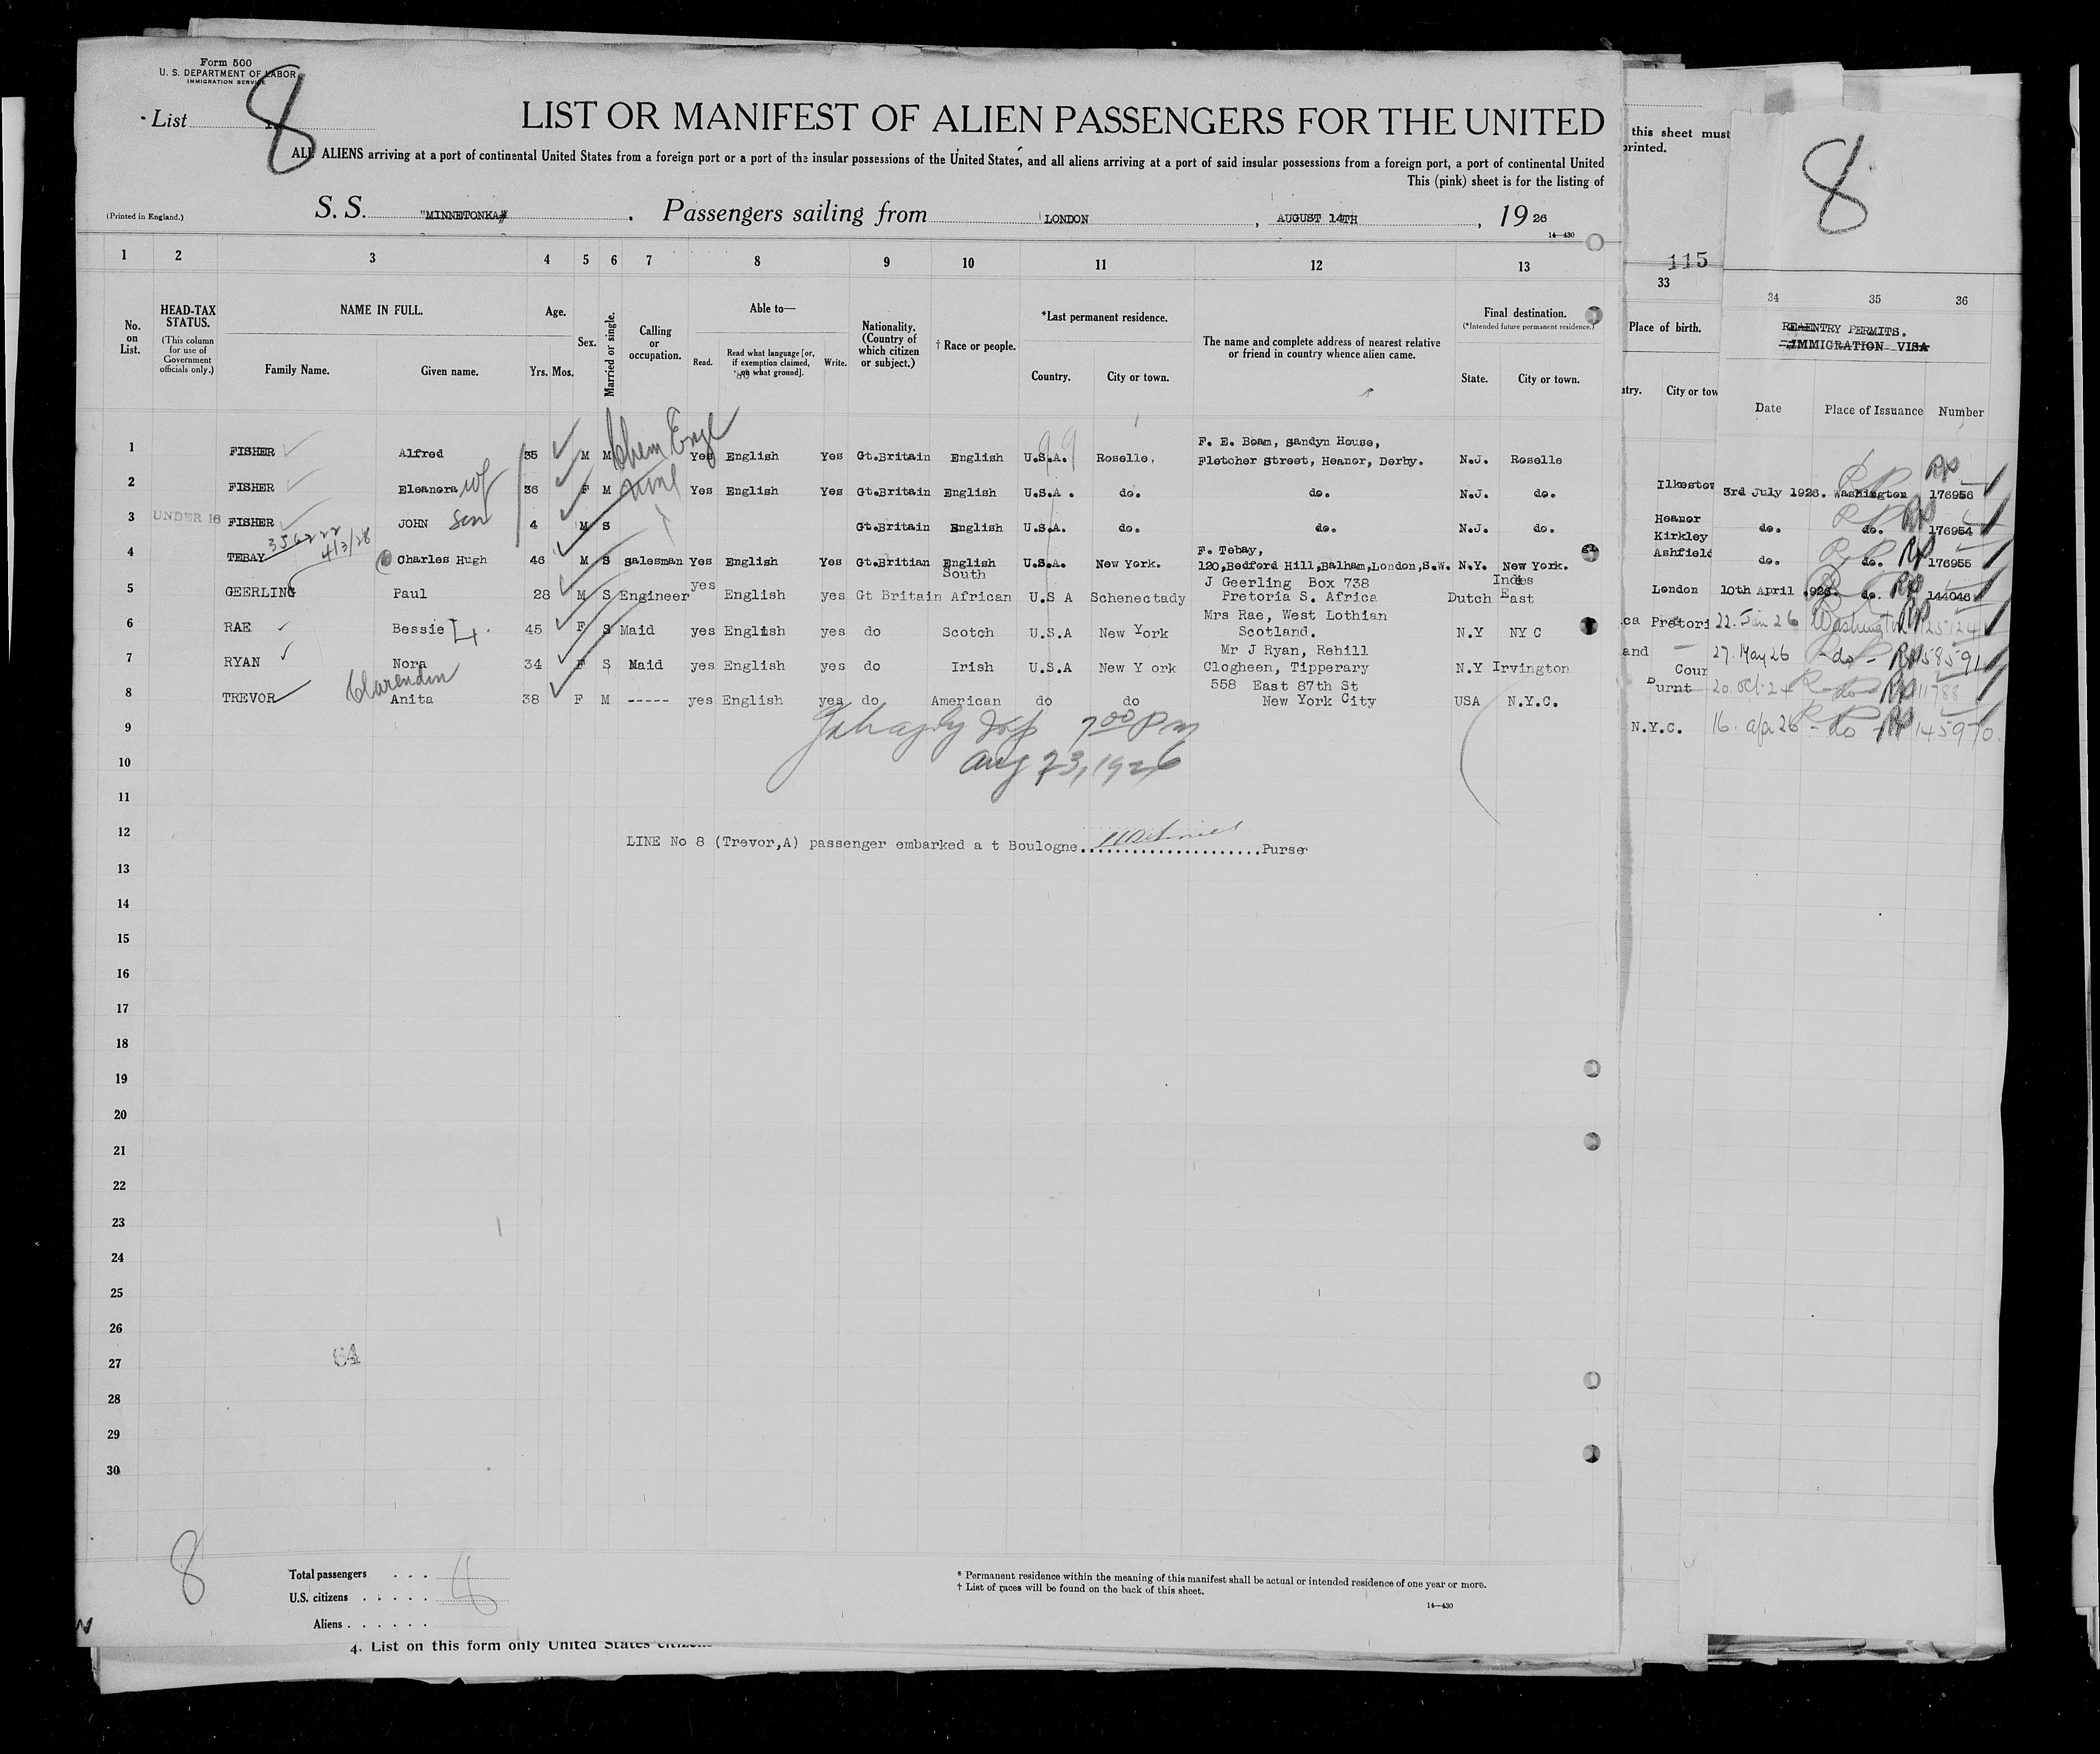 Form 500
U. S. DEPARTMENT OF LABOR
IMMIGRATION SERVICE
List 8
LIST OR MANIFEST OF ALIEN PASSENGERS FOR THE UNITED
ALL ALIENS arriving at a port of continental United States from a foreign port or a port of the insular possessions of the United States, and all aliens arriving at a port of said insular possessions from a foreign port, a port of continental United
This (pink) sheet is for the listing of
(Printed in England.)
S. S. "MINNETONKA" . Passengers sailing from LONDON , AUGUST 14TH , 19 26
14—430
this sheet must
printed.
8
115
1 2 3 4 5 6 7 8 9 10 11 12 13 33 34 35 36
No. on List.
HEAD-TAX STATUS.
(This column for use of Government officials only.)
NAME IN FULL.
Family Name. Given name.
Age.
Yrs. Mos.
Sex.
Married or single.
Calling or occupation.
Able to—
Read. Read what language [or, if exemption claimed, on what ground]. Write.
Nationality. (Country of which citizen or subject.)
† Race or people.
*Last permanent residence.
Country. City or town.
The name and complete address of nearest relative or friend in country whence alien came.
Final destination.
(*Intended future permanent residence.)
State. City or town.
Place of birth.
ntry. City or tow
REENTRY PERMITS.
IMMIGRATION VISA
Date Place of Issuance Number
Chem Engr
1 FISHER Alfred 35 M M Yes English Yes Gt.Britain English U.S.A. Roselle, F. E. Boam, sandyn House, Fletcher Street, Heanor, Derby. N.J. Roselle
2 FISHER Eleanora wf 36 F M Yes English Yes Gt.Britain English U.S.A. do. do. N.J. do.
3 UNDER 16 FISHER JOHN son 4 M S Gt.Britain English U.S.A. do. do. N.J. do.
4/3/28
4 TEBAY Charles Hugh 46 M S salesman Yes English Yes Gt.Britian English U.S.A. New York. F. Tebay, 120,Bedford Hill,Balham,London,S.W. N.Y. New York.
5 GEERLING Paul 28 M S Engineer yes English yes Gt Britain South African U.S A Schenectady J Geerling Box 738 Pretoria S. Africa Dutch East Indes
6 RAE Bessie 45 F S Maid yes English yes do Scotch U.S.A New York Mrs Rae, West Lothian Scotland. N.Y NY C
7 RYAN Nora 34 F S Maid yes English yes do Irish U.S.A New Y ork Mr J Ryan, Rehill Clogheen, Tipperary N.Y Irvington
Clarendin
8 TREVOR Anita 38 F M ----- yes English yes do American do do 558 East 87th St New York City USA N.Y.C.
Ilkeston 3rd July 1926. Washington RP 176956
Heanor do. do. RP 176954
Kirkley
Ashfield do. do. RP 176955
London 10th April 1926. do. RP 144046
ca Pretori 22. Jan 26 Washington RP 125124
and — 27. May 26 - do - RP 158591
Cour
Burnt 20. Oct. 24 do RP 11788
N.Y.C. 16. apr 26 - do RP 145970.
7 00 P m
Aug 23, 1926
9
10
11
12
LINE No 8 (Trevor,A) passenger embarked a t Boulogne.....................Purser
13
14
15
16
17
18
19
20
21
22
23
24
25
26
27
64
28
29
30
8
Total passengers . . . 8
U.S. citizens . . . . .
Aliens . . . . . .
* Permanent residence within the meaning of this manifest shall be actual or intended residence of one year or more.
† List of races will be found on the back of this sheet.
14—430
4. List on this form only United States